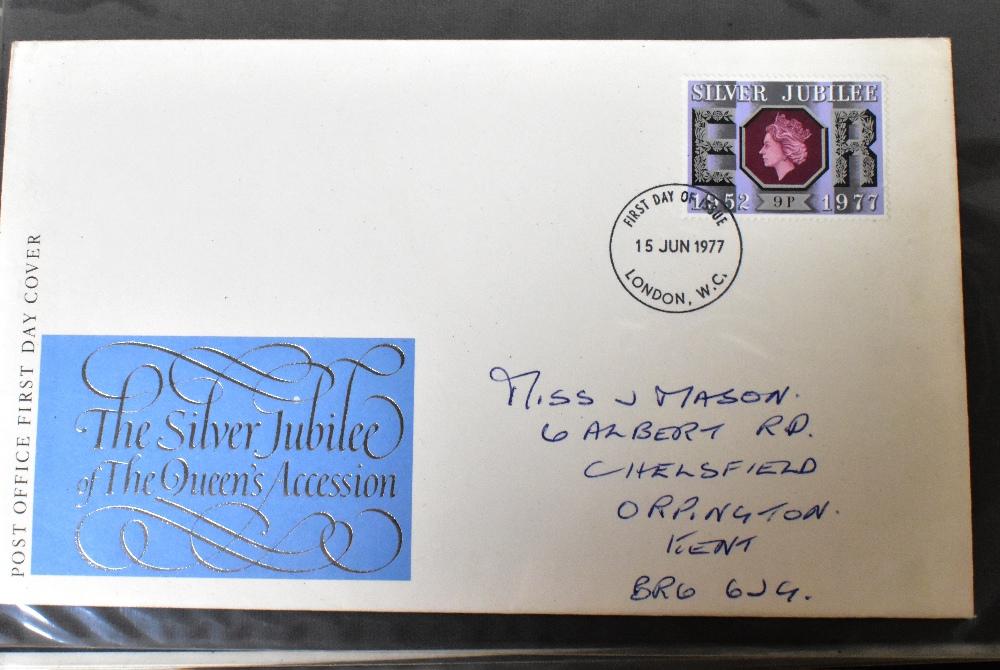 SILVER JUBILEE
E R
1952 9P 1977
FIRST DAY OF ISSUE
15 JUN 1977
LONDON, W.C.
POST OFFICE FIRST DAY COVER
The Silver Jubilee
of The Queen's Accession
MISS J MASON.
6 ALBERT RD.
CHELSFIELD
ORPINGTON.
KENT
BR6 6JG.